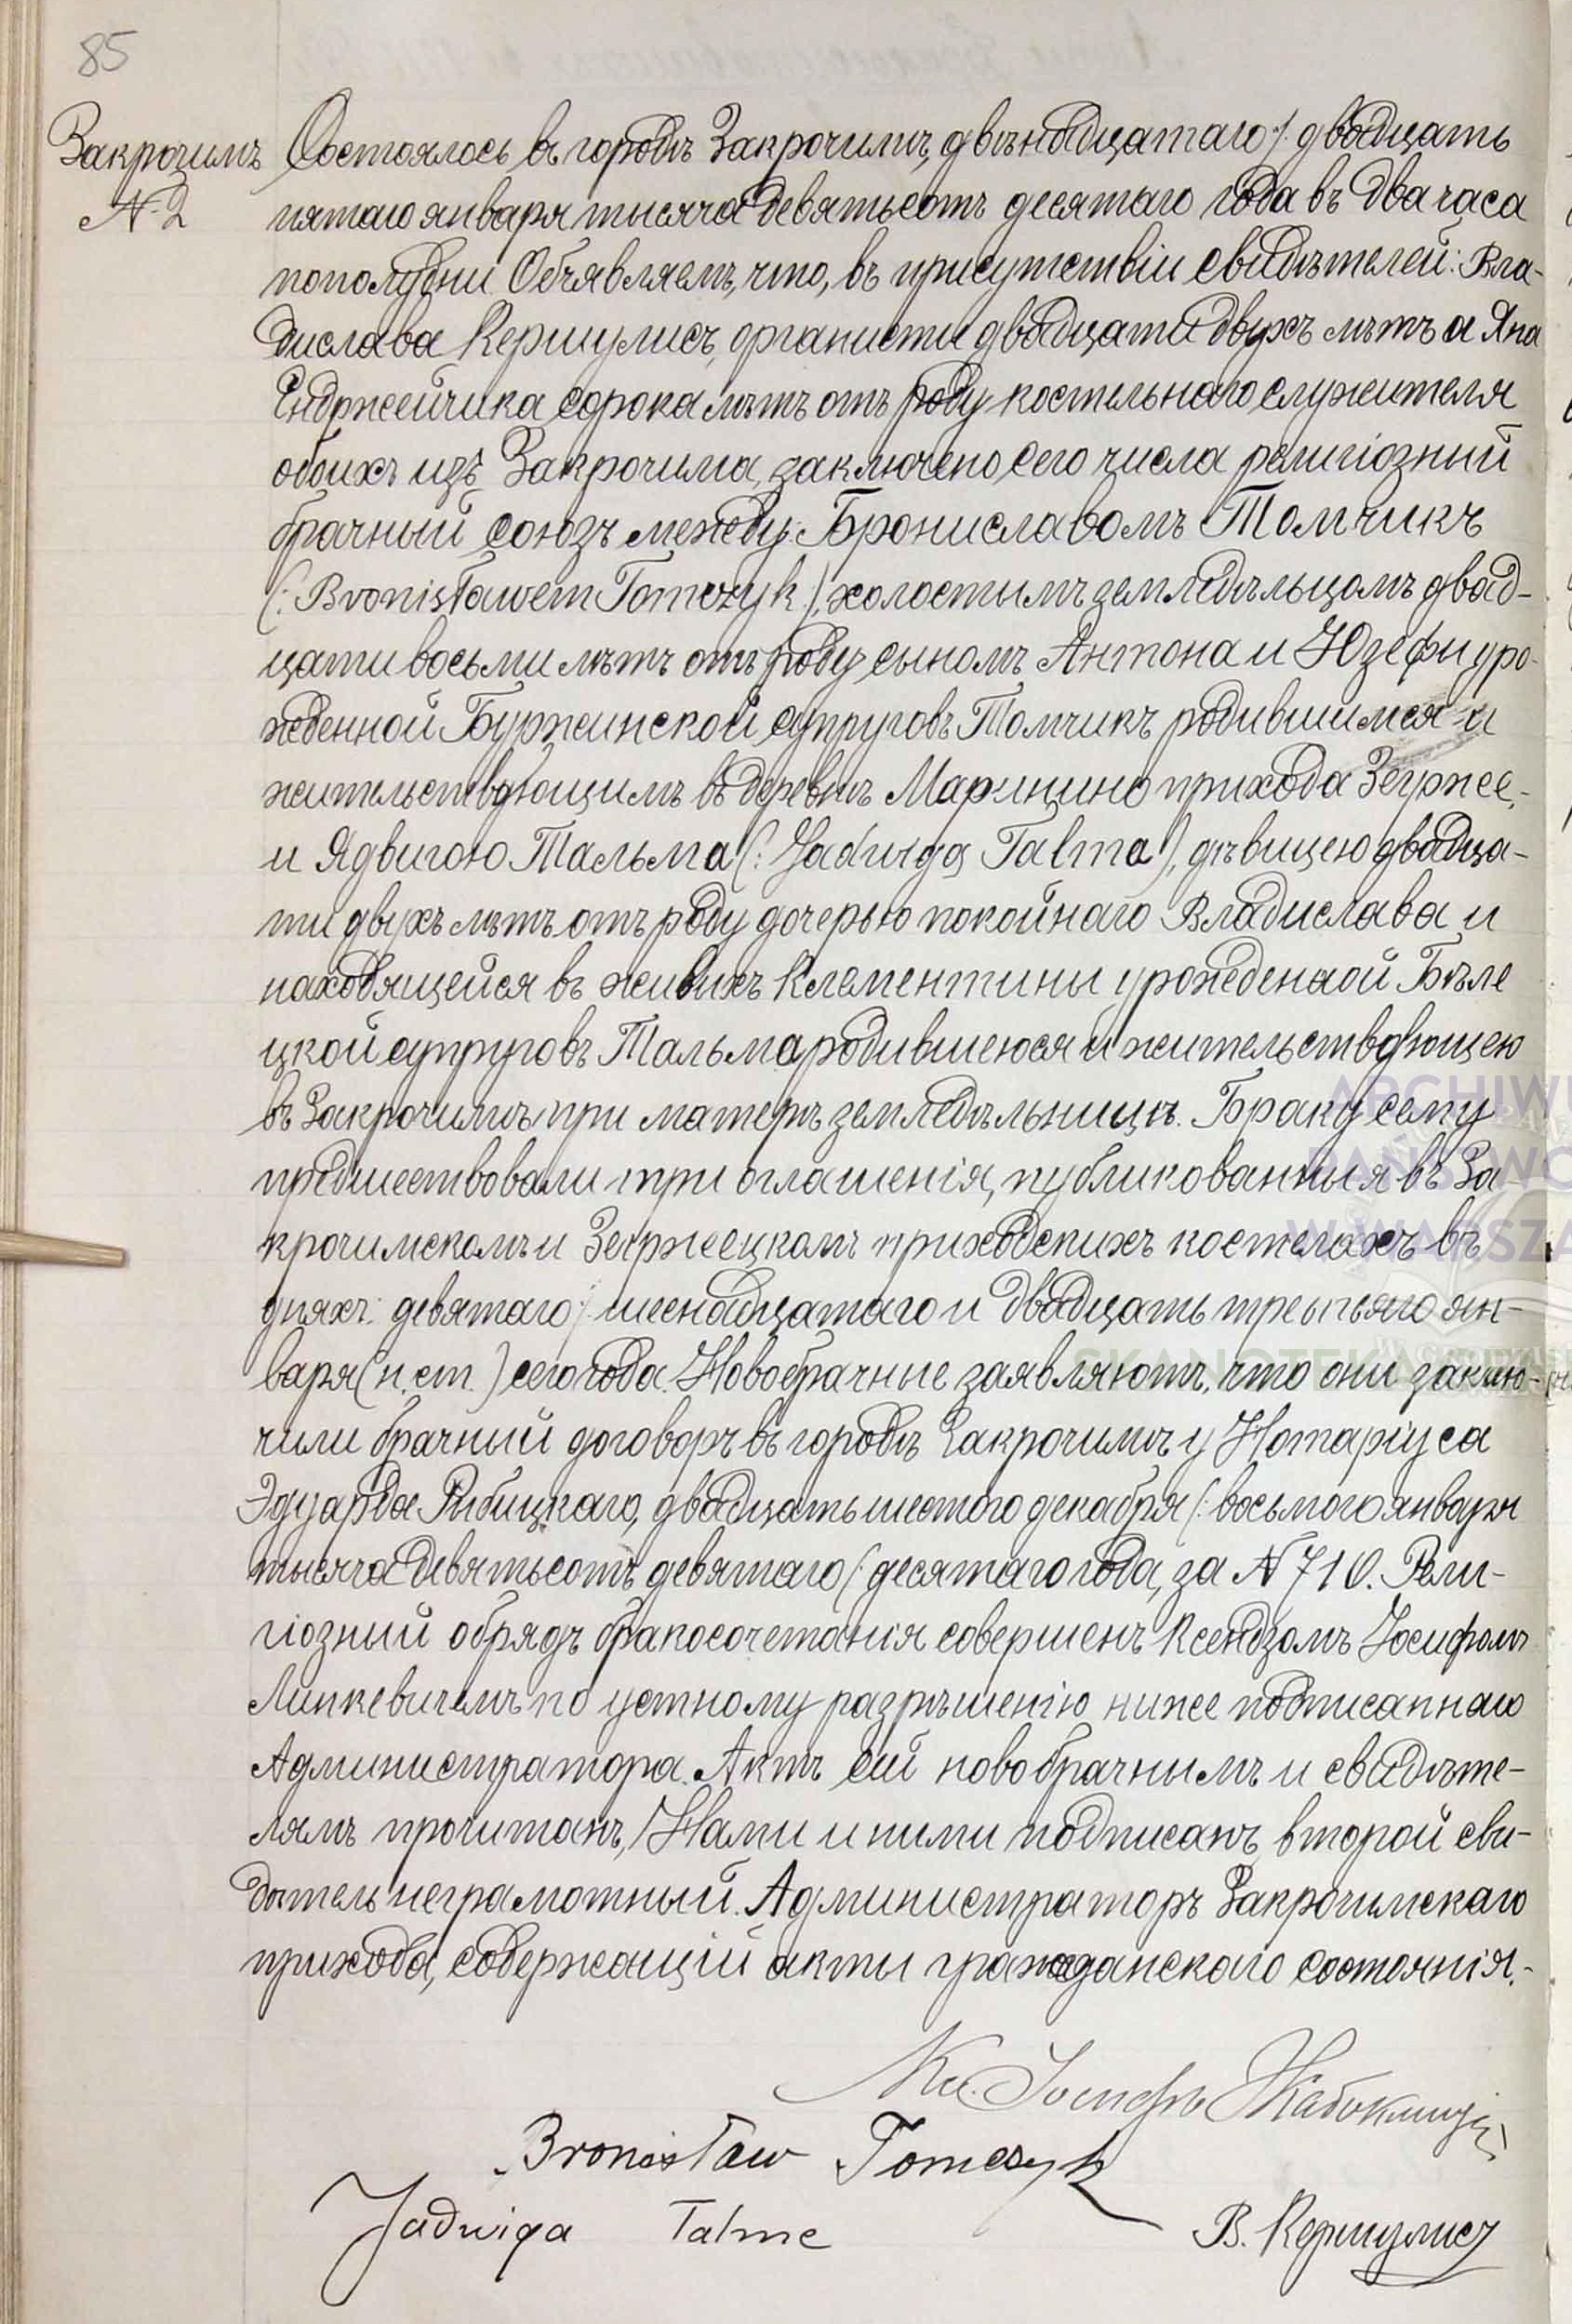 85
Закрочимъ
N. 2
Состоялось въ городѣ Закрочимѣ, двѣнадцатаго /: двадцать
пятаго января тысяча девятьсотъ десятаго года въ два часа
пополудни. Объявляемъ, что, въ присутствіи свидѣтелей: Вла-
дислава Кершулисъ, органисты двадцати двухъ лѣтъ а Яна
Ендржейчика сорока лѣтъ отъ роду костельнаго служителя
обоихъ изъ Закрочима, заключено сего числа религіозный
брачный союзъ между: Брониславомъ Томчикъ
(: Bronisławem Tomczyk :), холостымъ земледѣльцомъ двад-
цати восьми лѣтъ отъ роду сыномъ Антона и Юзефы уро-
жденной Буржинской супруговъ Томчикъ родившимся и
жительствующимъ въ деревнѣ Марынино прихода Зегрже,-
и Ядвигою Тальма (: Jadwigą Talma :), дѣвицею двадца-
ти двухъ лѣтъ отъ роду дочерью покойнаго Владислава и
находящейся въ живыхъ Клементины урожденной Бѣле
цкой супруговъ Тальма родившеюся и жительствующею
въ Закрочимѣ при матерѣ земледѣльницѣ. Браку сему
предшествовали три оглашенія, публикованныя въ За-
крочимскомъ и Зегржецкомъ приходскихъ костелахъ въ
дняхъ: девятаго /: шеснадцатаго и двадцать третьяго ян-
варя (н. ст.) сего года. Новобрачные заявляютъ, что они заклю-
чили брачный договоръ въ городѣ Закрочимѣ у Нотаріуса
Эдуарда Рыбицкаго, двадцать шестого декабря (: восьмого января
тысяча девятьсотъ девятаго (: десятаго года, за N 710. Рели-
гіозный обрядъ бракосочетанія совершенъ Ксендзомъ Іосифомъ
Липкевичемъ по устному разрѣшенію ниже подписаннаго
Администратора. Актъ сей новобрачнымъ и свидѣте-
лямъ прочитанъ, Нами и ними подписанъ, второй сви-
дѣтель неграмотный. Администраторъ Закрочимскаго
прихода, содержащій акты гражданскаго состоянія.-
Кс. Іосифъ
Bronisław Tomczyk
Jadwiga Talme
В. Кершулисъ
ARCHIWU
PAŃSTWO
W WARSZA
SKANOTEKA